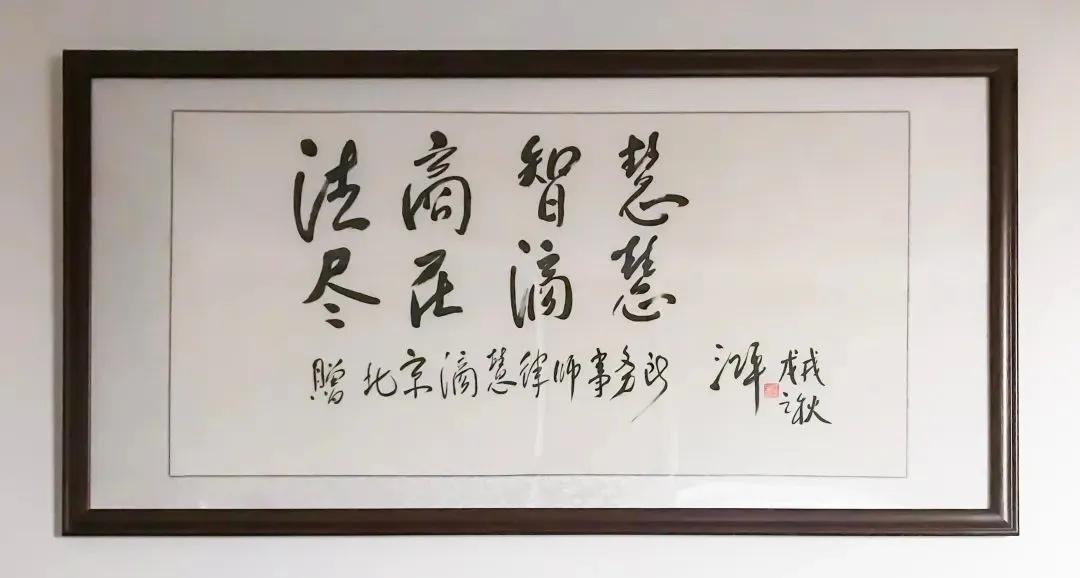 法商智慧
尽在滳慧
赠北京滳慧律师事务所 江平
戊戌
之秋